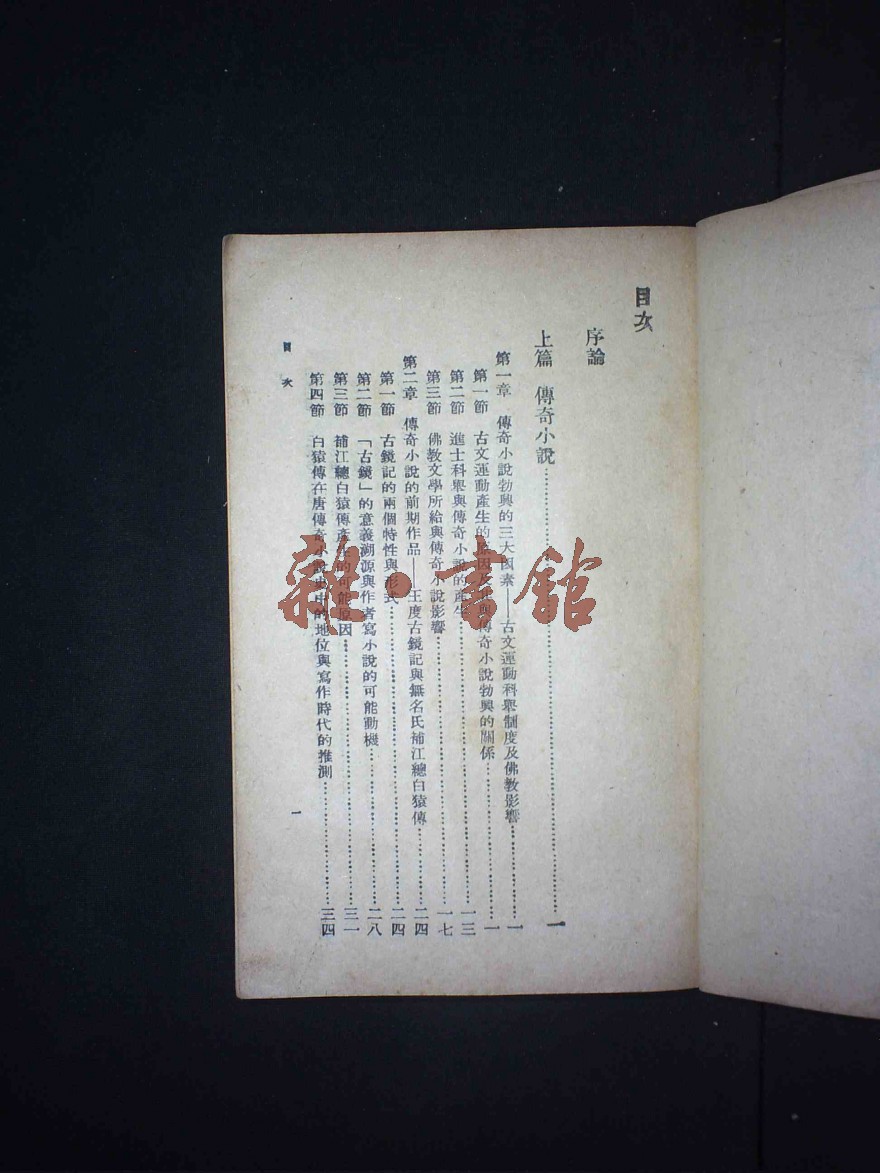 目次
序論
上篇 傳奇小說……一
第一章 傳奇小說勃興的三大因素——古文運動科舉制度及佛教影響……一
第一節 古文運動產生的原因及其與傳奇小說勃興的關係……一
第二節 進士科舉與傳奇小說的產生……一三
第三節 佛教文學所給與傳奇小說影響……一七
第二章 傳奇小說的前期作品——王度古鏡記與無名氏補江總白猿傳……二四
第一節 古鏡記的兩個特性與形式……二四
第二節 「古鏡」的意義溯源與作者寫小說的可能動機……二八
第三節 補江總白猿傳產生的可能原因……三一
第四節 白猿傳在唐傳奇小說史中的地位與寫作時代的推測……三四
目次
一
雜·書館